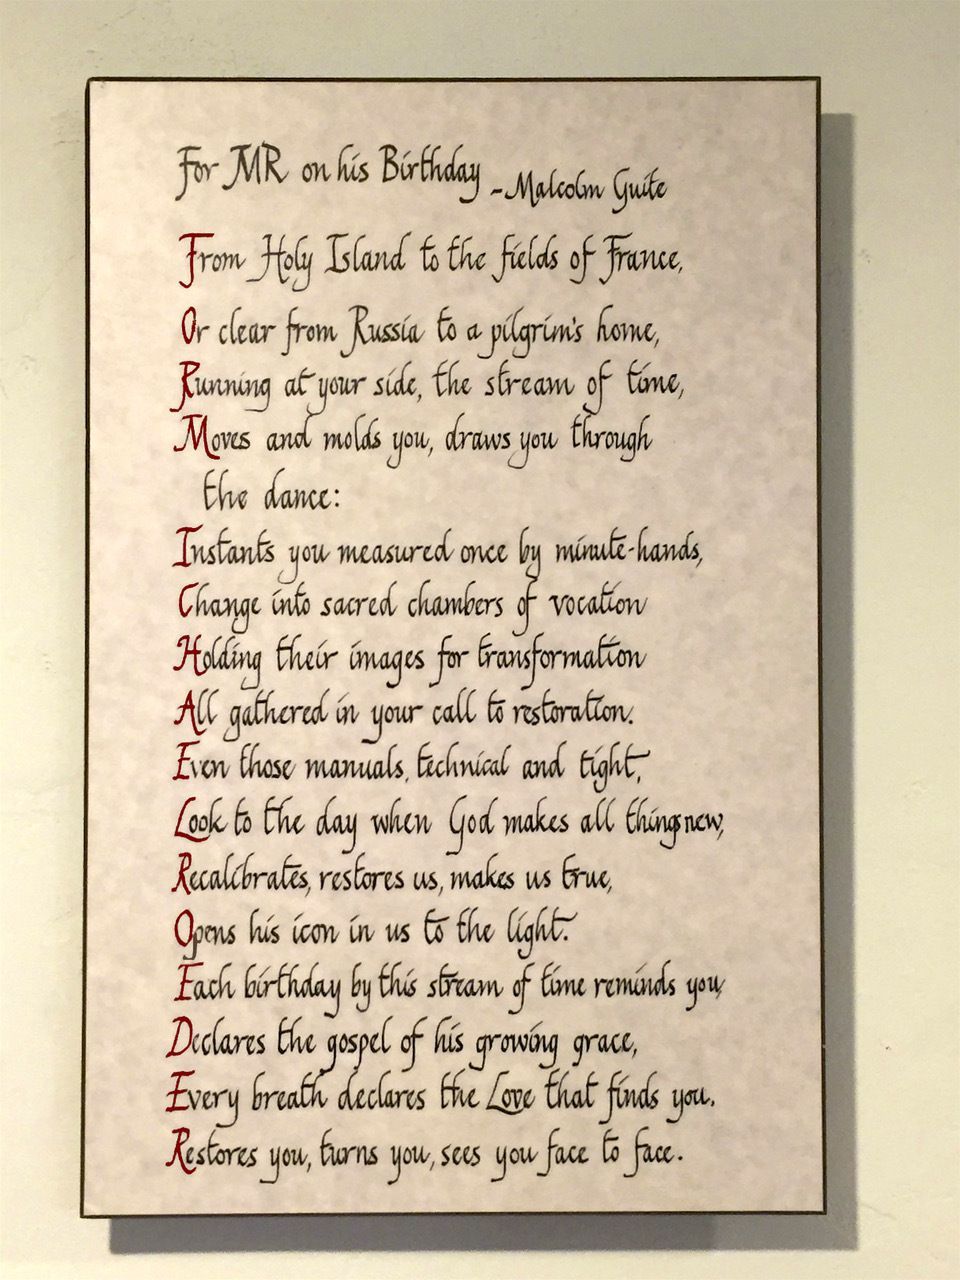 For MR on his Birthday
-Malcolm Guite
From Holy Island to the fields of France,
Or clear from Russia to a pilgrim's home,
Running at your side, the stream of time,
Moves and molds you, draws you through
the dance:
Instants you measured once by minute-hands,
Change into sacred chambers of vocation
Holding their images for transformation
All gathered in your call to restoration.
Even those manuals, technical and tight,
Look to the day when God makes all things new,
Recalibrates, restores us, makes us true,
Opens his icon in us to the light.
Each birthday by this stream of time reminds you,
Declares the gospel of his growing grace,
Every breath declares the Love that finds you.
Restores you, turns you, sees you face to face.